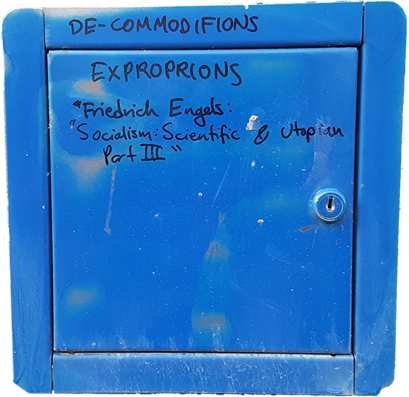 DE-COMMODIFIONS
EXPROPRIONS
*Friedrich Engels:
"Socialism: Scientific & Utopian
Part III"